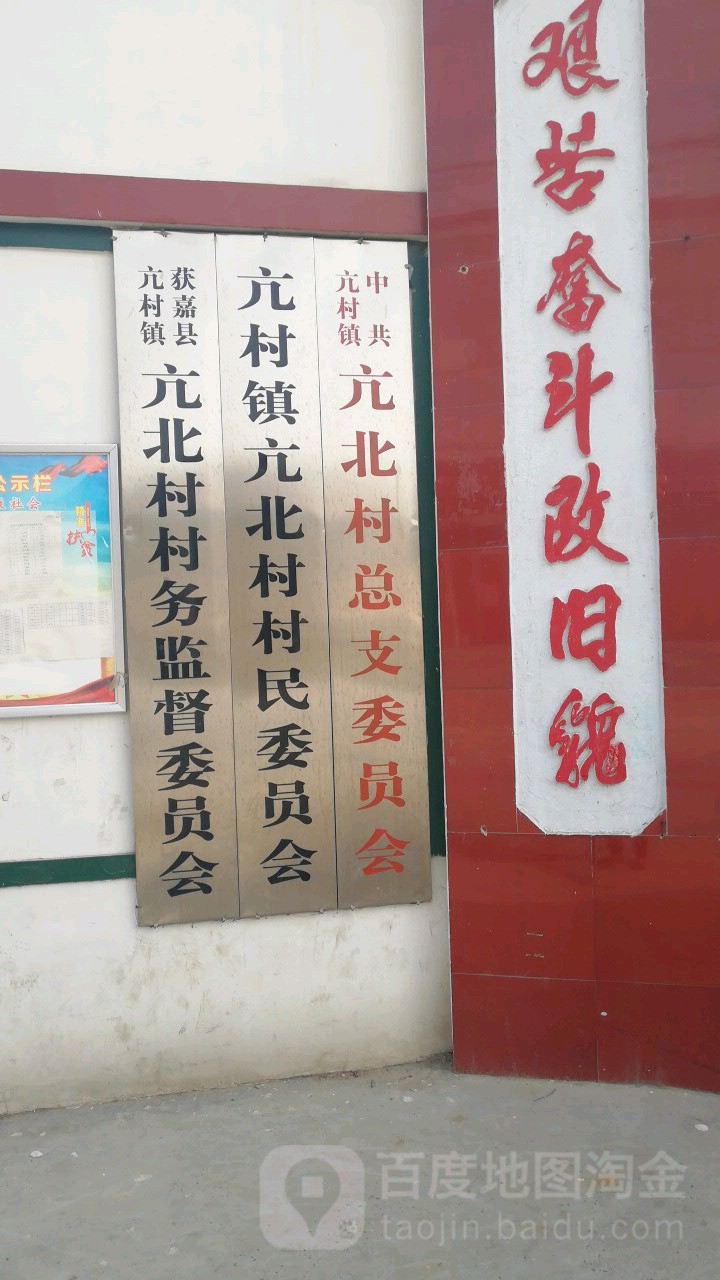 艰苦奋斗改旧貌
中共
亢村镇
亢北村总支委员会
亢村镇亢北村村民委员会
获嘉县
亢村镇
亢北村村务监督委员会
公示栏
社会
百度地图淘金
taojin.baidu.com